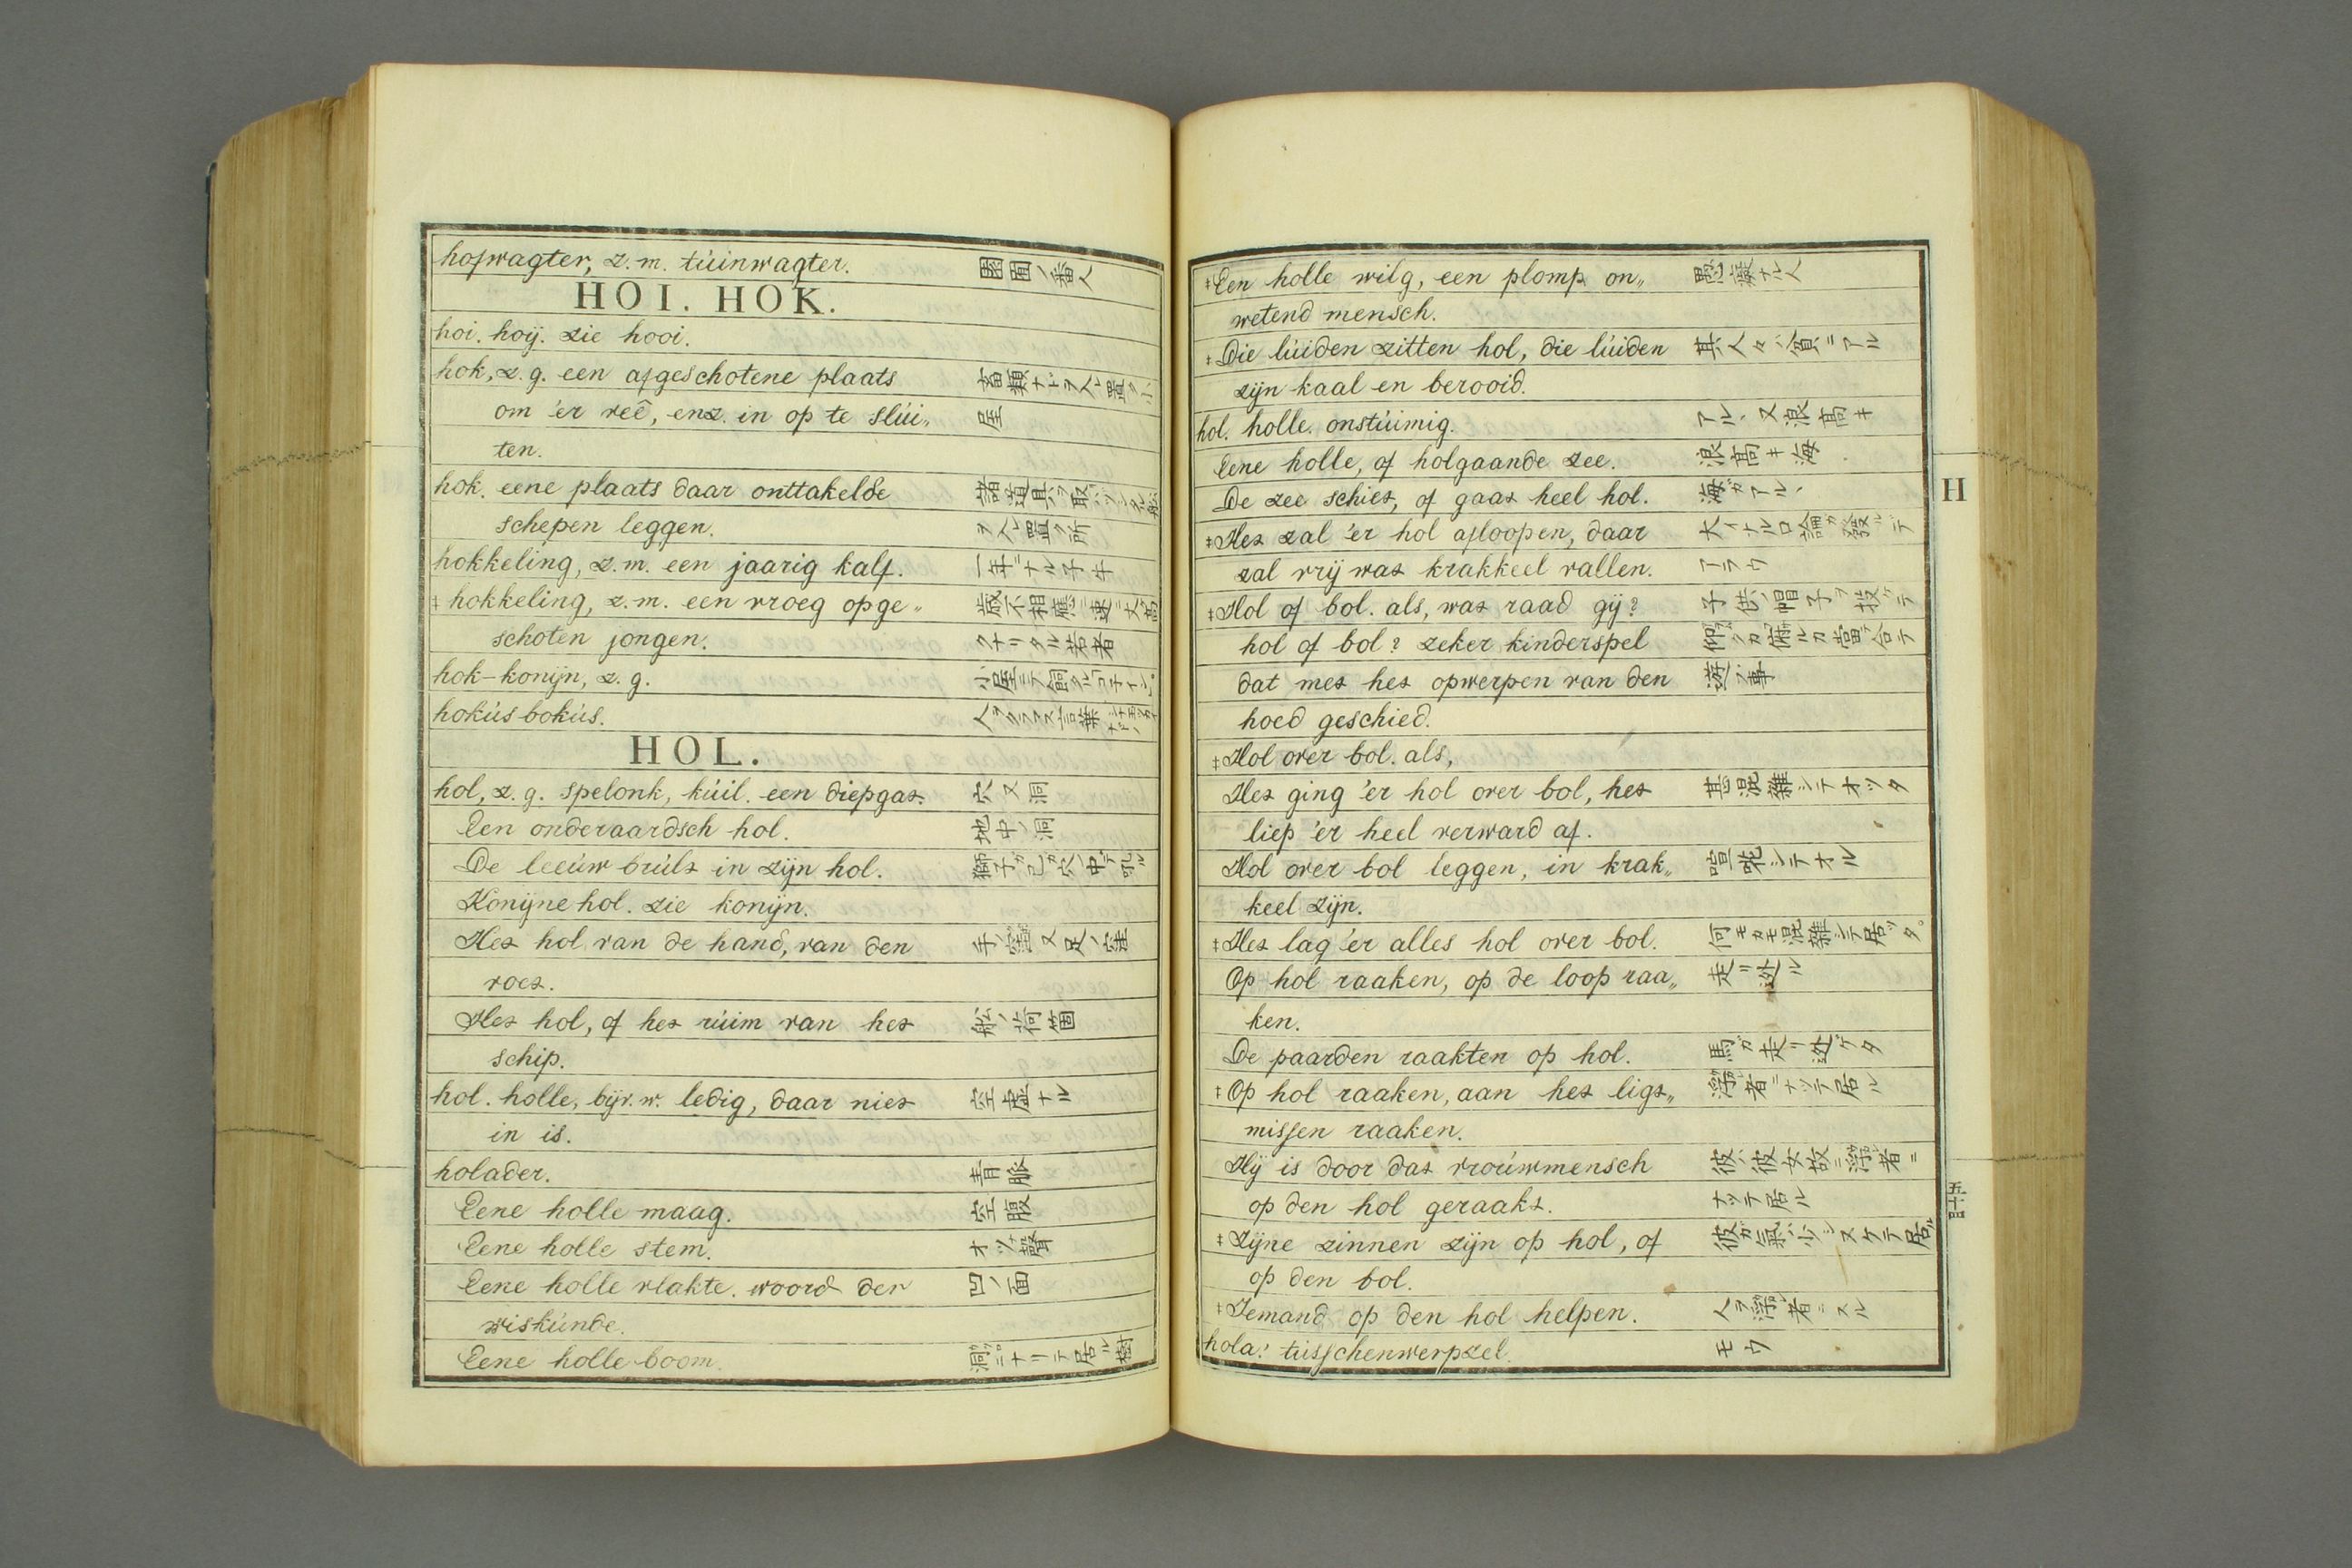 hofwagter, z. m. túinwagter. 園圃ノ番人
HOI. HOK.
hoi. hoij. zie hooi.
hok, z. g. een afgeschotene plaats 畜類ナドヲ入レ置ク小
om 'er veê, enz. in op te slúi„ 屋
ten.
hok. eene plaats daar onttakelde 諸道具ヲ取
schepen leggen. ヲ入レ置ク所
hokkeling, z. m. een jaarig kalf. 一年ニナル子牛
‡ hokkeling, z. m. een vroeg opge„ 歳不相應ニ速ニ大
schoten jongen. クナリタル若者
hok-konijn, z. g. 小屋ニテ飼タル
hokús bokús. 人ヲクラマス言葉
HOL.
hol, z. g. spelonk, kúil. een diep gat. 穴又洞
Een onderaardsch hol. 地中ノ洞
De leeúw brúlt in zijn hol. 獅子ガ己ガ穴ノ中デ吼ル
Konijne hol. zie konijn.
Het hol van de hand, van den 手ノ窪又足ノ窪
voet.
Het hol, of het rúim van het 舩ノ荷箇
schip.
hol. holle, bijv. w. ledig, daar niet 空虚ナル
in is.
holader. 青脈
Eene holle maag. 空腹
Eene holle stem. 聲
Eene holle vlakte. woord der 凹ノ面
wiskúnde.
Eene holle boom. 洞ニナリテ居ル樹
‡ Een holle wilg, een plomp on„ 愚癡ナル人
wetend mensch.
‡ Die lúiden zitten hol, die lúiden 其人々ハ貧ニアル
zijn kaal en berooid.
hol. holle. onstúimig. アルヽ又浪高キ
Eene holle, of holgaande zee. 浪高キ海
De zee schiet, of gaat heel hol. 海ガアルヽ
‡ Het zal 'er hol afloopen, daar 大ナル口論ガ發ルデ
zal vrij wat krakkeel vallen. アラウ
‡ Hol of bol. als, wat raad gij? 子供ノ帽子ヲ投ゲテ
hol of bol? zeker kinderspel 仰クカ俯ルカ當合テ
dat met het opwerpen van den 遊ブ事
hoed geschied.
‡ Hol over bol. als,
Het ging 'er hol over bol, het 甚混雜シテオツタ
liep 'er heel verward af.
Hol over bol leggen, in krak„ 喧嘩シテオル
keel zijn.
‡ Het lag 'er alles hol over bol. 何モカモ混雜シテ居ツタ。
Op hol raaken, op de loop raa„ 走リ迯ル
ken.
De paarden raakten op hol. 馬ガ走リ迯ゲタ
‡ Op hol raaken, aan het ligt„ 者ニナツテ居ル
missen raaken.
Hij is door dat vroúwmensch 彼ハ彼女故ニ者ニ
op den hol geraakt. ナツテ居ル
‡ Zijne zinnen zijn op hol, of 彼ガ氣ハ少シヌケテ居ル
op den bol.
‡ Iemand op den hol helpen. 人ヲ者ニスル
hola! tusschenwerpzel. モウ
H
五十四